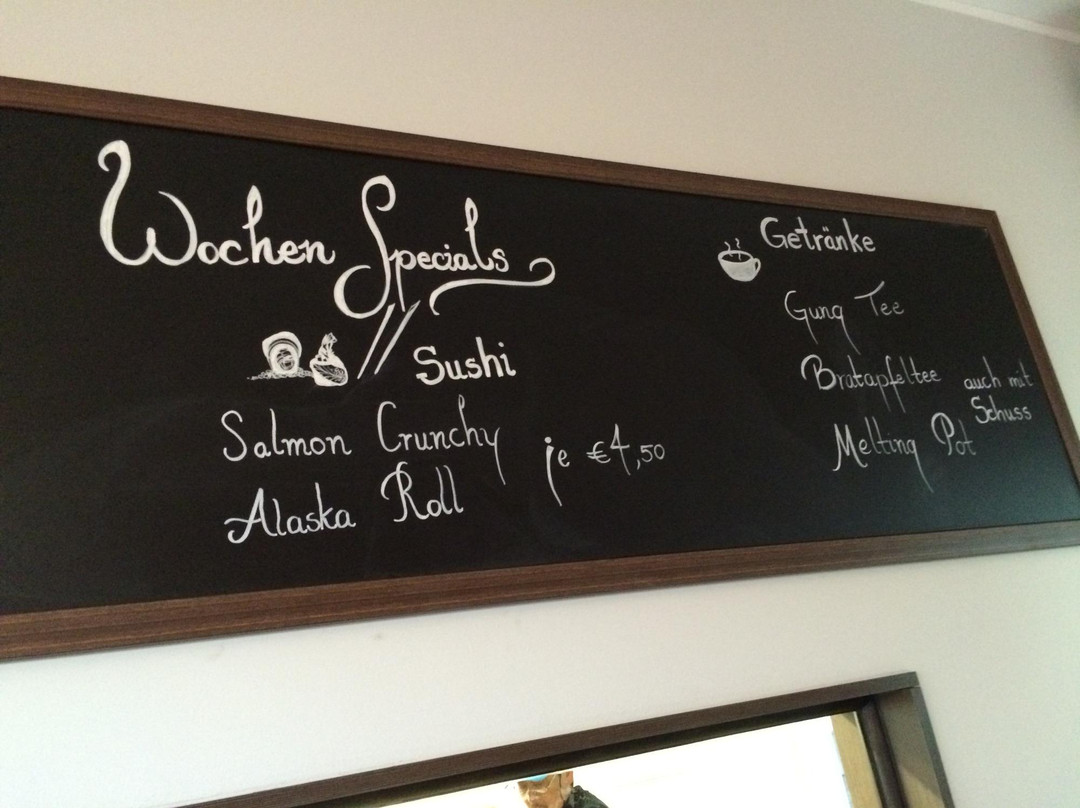 Wochen Specials
Sushi
Salmon Crunchy
Alaska Roll
je €4,50
Getränke
Gung Tee
Bratapfeltee auch mit
Schuss
Melting Pot